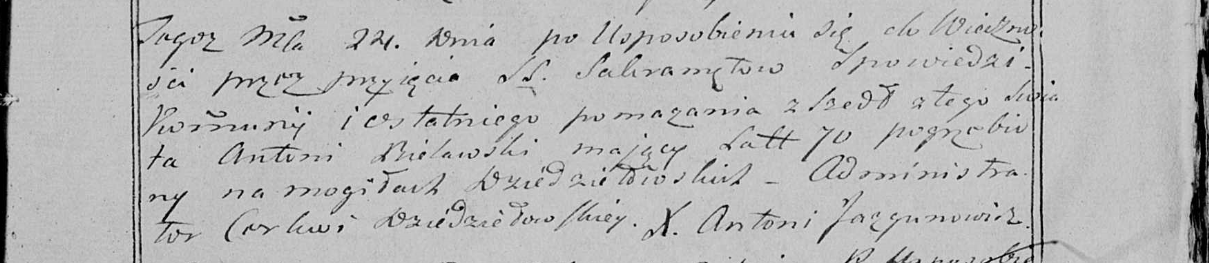 Tegoz Mca 24. Dnia po Usposobieniu się do Wieczno-
ści przez przyjęcie SS. Sakramętow Spowiedzi -
Kom̃unij i ostatniego pomazania z Szedł z tego Swia
ta Antoni Bielawski mający Latt 70 pogrzebio
ny na mogiłach Dziedziełowskich - Administra-
tor Cerkwi Dziedziełowskiey. X. Antoni Jazgunowicz.
Usposobie